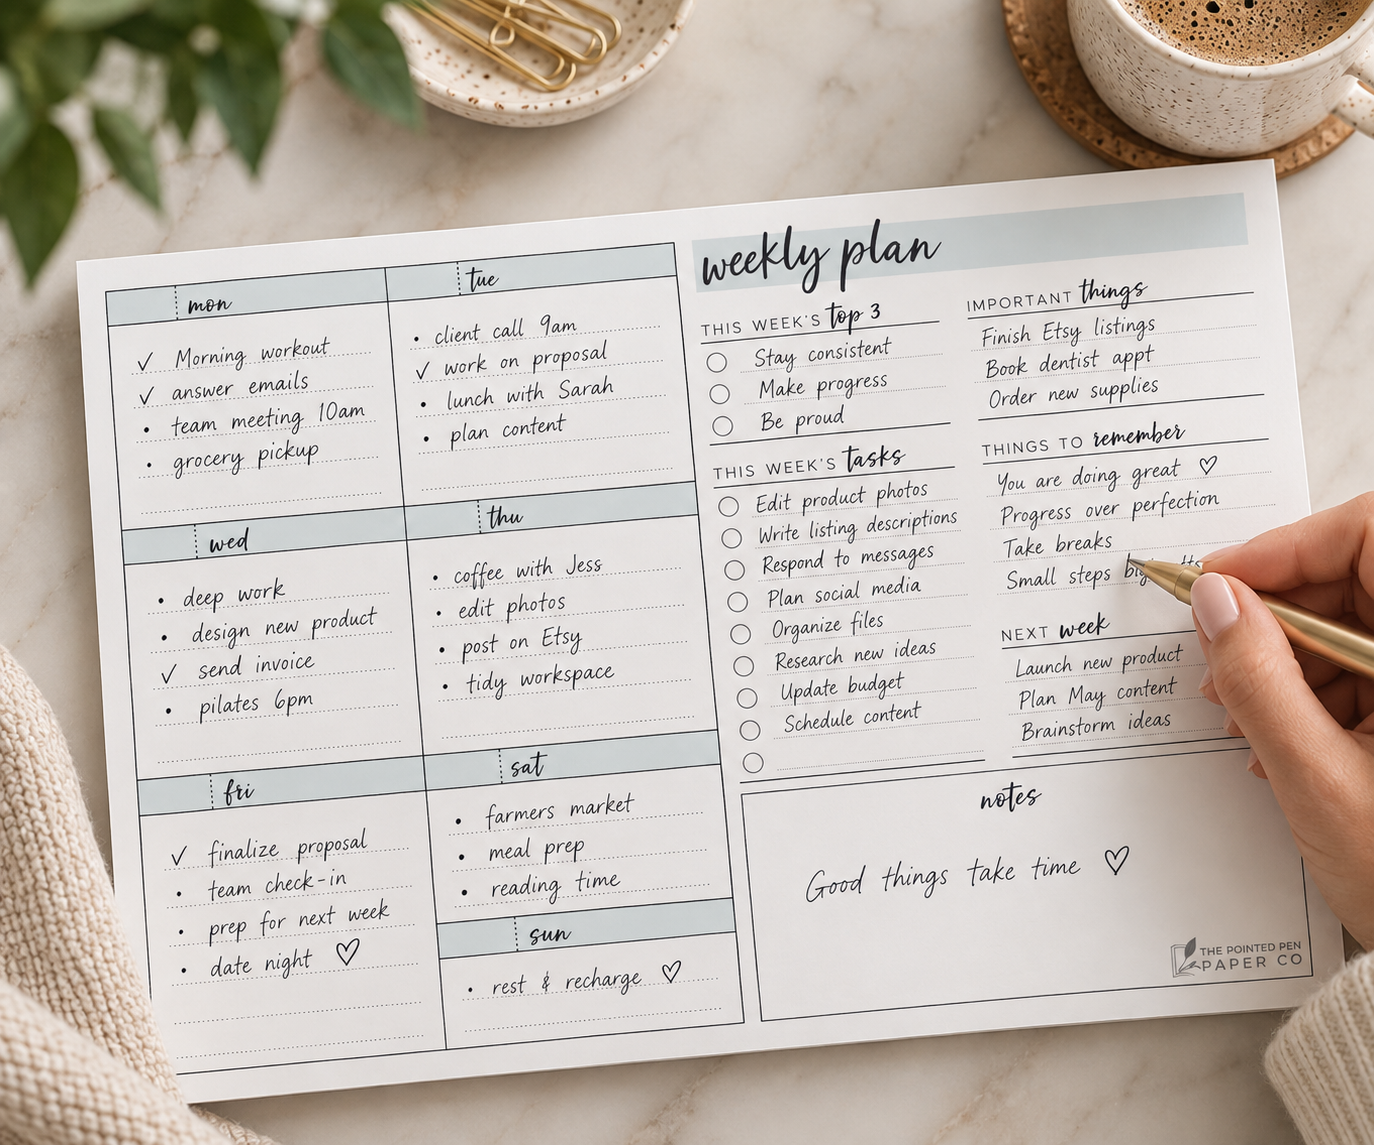 mon
✓ Morning workout
✓ answer emails
• team meeting 10am
• grocery pickup
tue
• client call 9am
✓ work on proposal
• lunch with Sarah
• plan content
wed
• deep work
• design new product
✓ send invoice
• pilates 6pm
thu
• coffee with Jess
• edit photos
• post on Etsy
• tidy workspace
fri
✓ finalize proposal
• team check-in
• prep for next week
• date night ♡
sat
• farmers market
• meal prep
• reading time
sun
• rest & recharge ♡
weekly plan
THIS WEEK'S top 3
Stay consistent
Make progress
Be proud
THIS WEEK'S tasks
Edit product photos
Write listing descriptions
Respond to messages
Plan social media
Organize files
Research new ideas
Update budget
Schedule content
IMPORTANT things
Finish Etsy listings
Book dentist appt
Order new supplies
THINGS TO remember
You are doing great ♡
Progress over perfection
Take breaks
Small steps
NEXT week
Launch new product
Plan May content
Brainstorm ideas
notes
Good things take time ♡
THE POINTED PEN
PAPER CO